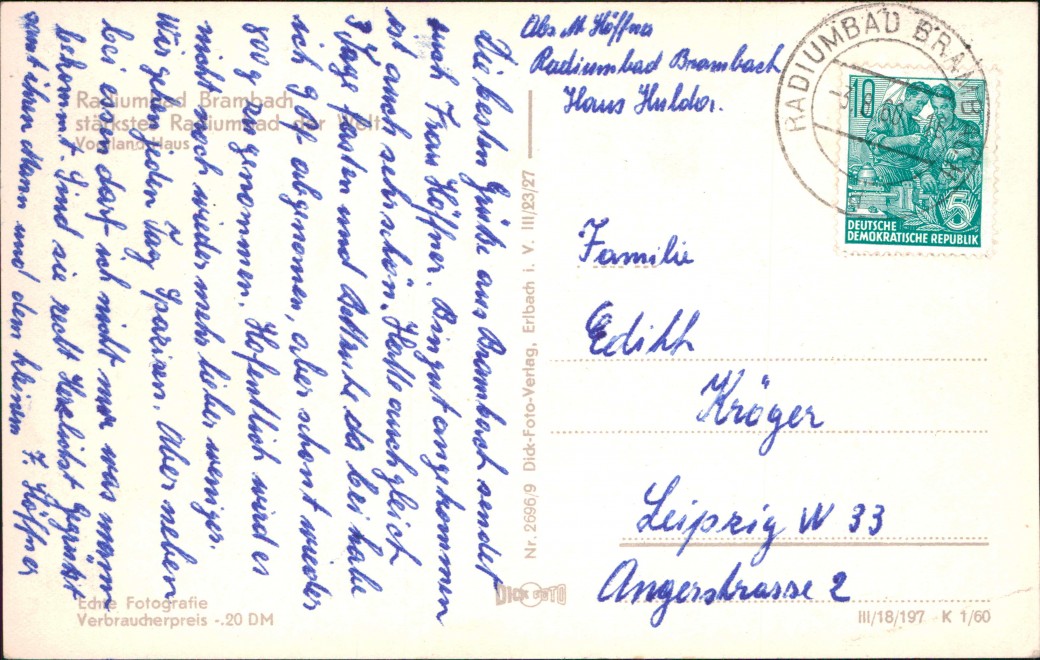 Die besten Grüße aus Brambach sendet
euch Frau Höffner. Bin gut angekommen
ist auch sehr schön. Hatte auch gleich
3 Tage fasten und Bettruhe da bei habe
ich gut abgenomen, aber schont wieder
800 g Zugenommen. Hofentlich wird es
nicht noch wieder mehr lieber weniger.
Wir gehen jeden Tag Spaziren. Aber neben
bei essen darf ich nicht mer was wenn
bekommt. Sind sie recht Herzlichst Gegrüßt
samt ihren Mann und dem kleinen F. Höffner
Radiumbad Brambach
stärkstes Radiumbad der Welt
Vogtland-Haus
Echte Fotografie
Verbraucherpreis -.20 DM
Nr. 2696/9 Dick-Foto-Verlag, Erlbach i. V. III/23/27
DICK FOTO
Abs M Höffner
Radiumbad Brambach
Haus Hulda.
RADIUMBAD BRAMBACH
10
5
DEUTSCHE
DEMOKRATISCHE REPUBLIK
Familie
Edith
Kröger
Leipzig W 33
Angerstrasse 2
III/18/197 K 1/60